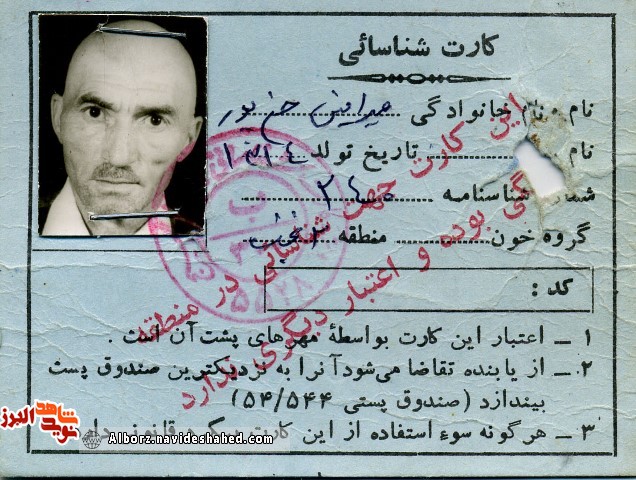 کارت شناسائی
نام و نام خانوادگی
نام تاریخ تولد ۱۳۱۴
شماره شناسنامه ۲۴۰
گروه خون منطقه
کد :
۱ ـ اعتبار این کارت بواسطهٔ مهرهای پشت آن است .
۲ ـ از یابنده تقاضا می‌شود آنرا به نزدیکترین صندوق پست
بیندازد (صندوق پستی ۵۴/۵۴۴)
۳ ـ هرگونه سوء استفاده از این کارت پیگرد قانونی دارد
این کارت جهت شناسائی در منطقه
گی بوده و اعتبار دیگری ندارد
نوید شاهد البرز
Alborz.navideshahed.com